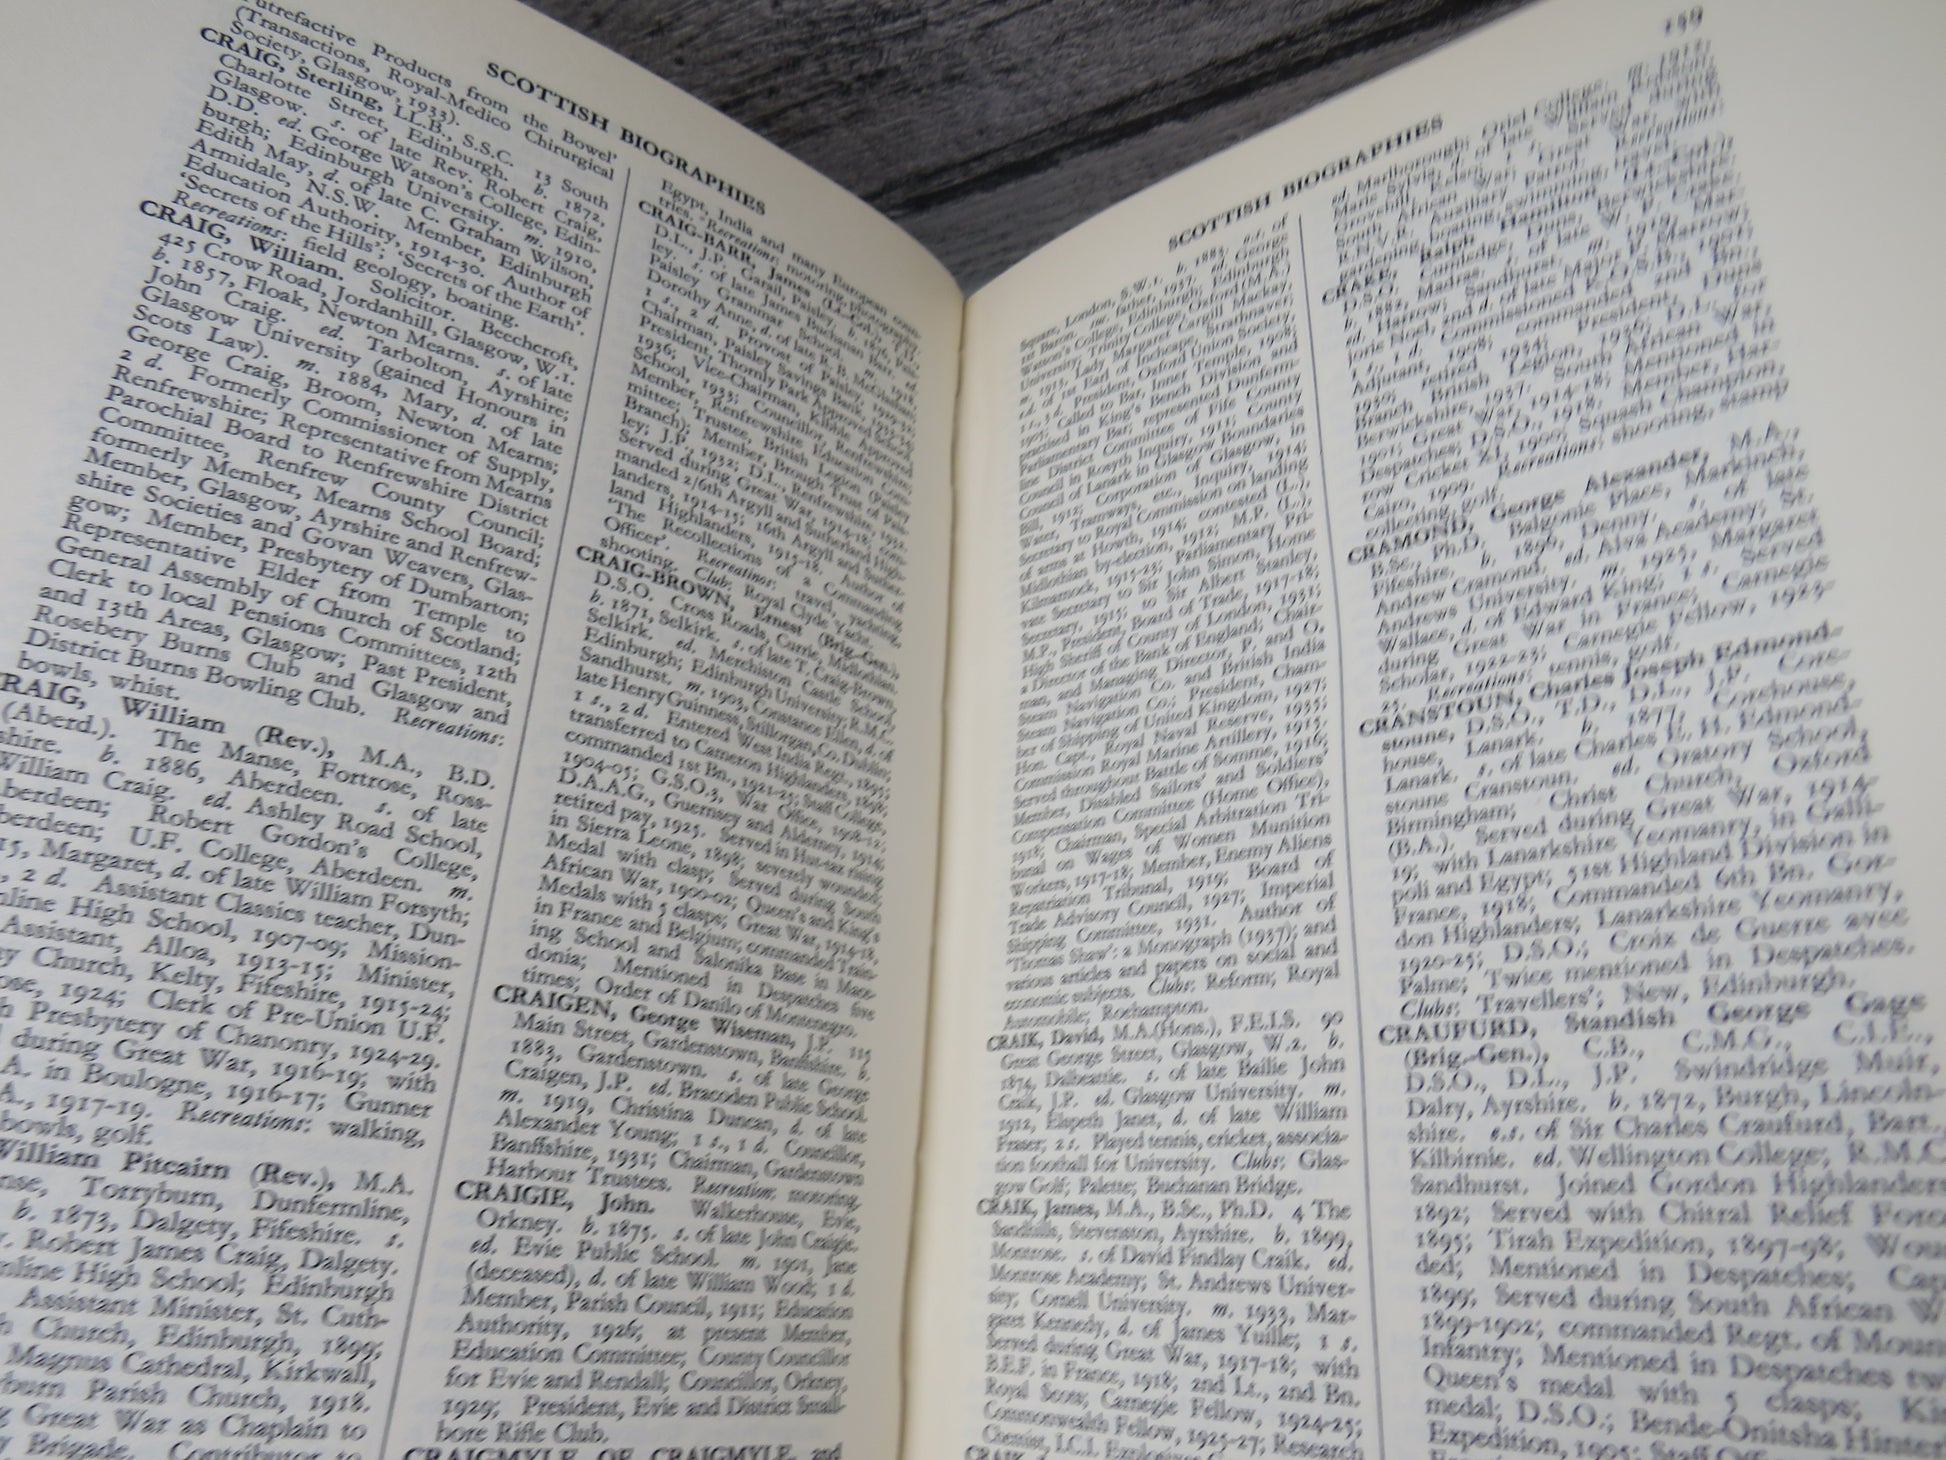 SCOTTISH BIOGRAPHIES
utrefactive Products from the Bowel'
(Transactions, Royal-Medico Chirurgical
Society, Glasgow, 1933).
CRAIG, Sterling, LL.B., S.S.C. 13 South
Charlotte Street, Edinburgh. b. 1872,
Glasgow. s. of late Rev. Robert Craig,
D.D. ed. George Watson's College, Edin-
burgh; Edinburgh University. m. 1910,
Edith May, d. of late C. Graham Wilson,
Armidale, N.S.W. Member, Edinburgh
Education Authority, 1914-30. Author of
'Secrets of the Hills'; 'Secrets of the Earth'.
Recreations: field geology, boating.
CRAIG, William. Solicitor. Beechcroft,
425 Crow Road, Jordanhill, Glasgow, W.1.
b. 1857, Floak, Newton Mearns. s. of late
John Craig. ed. Tarbolton, Ayrshire;
Glasgow University (gained Honours in
Scots Law). m. 1884, Mary, d. of late
George Craig, Broom, Newton Mearns;
2 d. Formerly Commissioner of Supply,
Renfrewshire; Representative from Mearns
Parochial Board to Renfrewshire District
Committee, Renfrew County Council;
formerly Member, Mearns School Board;
Member, Glasgow, Ayrshire and Renfrew-
shire Societies and Govan Weavers, Glas-
gow; Member, Presbytery of Dumbarton;
Representative Elder from Temple to
General Assembly of Church of Scotland;
Clerk to local Pensions Committees, 12th
and 13th Areas, Glasgow; Past President,
Rosebery Burns Club and Glasgow and
District Burns Bowling Club. Recreations:
bowls, whist.
RAIG, William (Rev.), M.A., B.D.
(Aberd.). The Manse, Fortrose, Ross-
shire. b. 1886, Aberdeen. s. of late
William Craig. ed. Ashley Road School,
berdeen; Robert Gordon's College,
berdeen; U.F. College, Aberdeen. m.
15, Margaret, d. of late William Forsyth;
, 2 d. Assistant Classics teacher, Dun-
nline High School, 1907-09; Mission-
Assistant, Alloa, 1913-15; Minister,
y Church, Kelty, Fifeshire, 1915-24;
ose, 1924; Clerk of Pre-Union U.F.
h Presbytery of Chanonry, 1924-29.
d during Great War, 1916-19; with
A. in Boulogne, 1916-17; Gunner
A., 1917-19. Recreations: walking,
bowls, golf.
William Pitcairn (Rev.), M.A.
nse, Torryburn, Dunfermline,
b. 1873, Dalgety, Fifeshire. s.
Robert James Craig, Dalgety.
mline High School; Edinburgh
Assistant Minister, St. Cuth-
h Church, Edinburgh, 1899;
Magnus Cathedral, Kirkwall,
burn Parish Church, 1918.
g Great War as Chaplain to
y Brigade. Contributor to
Egypt, India and many European coun-
tries. Recreations: motoring, photography.
CRAIG-BARR, James, (Lt.-Col.), T.D.,
D.L., J.P. Garail, Paisley. b. 1876, Pais-
ley. s. of late James Buchanan Barr. ed.
Paisley Grammar School. m. 1918,
Dorothy Anne, d. of late R. B. McClelland;
1 s., 2 d. Provost of Paisley,
Chairman, Paisley Savings Bank,
President, Thornly Park Approved School,
1936; Vice-Chairman, Kibble Approved
School, 1933; Councillor, Renfrewshire;
Member, Renfrewshire Education Com-
mittee; Trustee, British Legion (Paisley
Branch); Member, Brough Trust of Pais-
ley; J.P., 1932; D.L., Renfrewshire, 1932.
Served during Great War, 1914-18; com-
manded 2/6th Argyll and Sutherland High-
landers, 1914-15; 16th Argyll and Suther-
land Highlanders, 1915-18. Author of
'The Recollections of a Commanding
Officer'. Recreations: travel, yachting,
shooting. Club: Royal Clyde Yacht.
CRAIG-BROWN, Ernest (Brig.-Gen.),
D.S.O. Cross Roads, Currie, Midlothian.
b. 1871, Selkirk. s. of late T. Craig-Brown,
Selkirk. ed. Merchiston Castle School,
Edinburgh; Edinburgh University; R.M.C.
Sandhurst. m. 1903, Constance Ellen, d. of
late Henry Guinness, Stillorgan, Co. Dublin;
1 s., 2 d. Entered West India Regt., 1895;
transferred to Cameron Highlanders, 1898;
commanded 1st Bn., 1921-25; Staff College,
1904-05; G.S.O.3, War Office, 1908-12;
D.A.A.G., Guernsey and Alderney, 1914;
retired pay, 1925. Served in Hut-tax rising
in Sierra Leone, 1898; severely wounded;
Medal with clasp; Served during South
African War, 1900-02; Queen's and King's
Medals with 5 clasps; Great War, 1914-18,
in France and Belgium; commanded Train-
ing School and Salonika Base in Mace-
donia; Mentioned in Despatches five
times; Order of Danilo of Montenegro.
CRAIGEN, George Wiseman, J.P. 115
Main Street, Gardenstown, Banffshire. b.
1883, Gardenstown. s. of late George
Craigen, J.P. ed. Bracoden Public School.
m. 1919, Christina Duncan, d. of late
Alexander Young; 1 s., 1 d. Councillor,
Banffshire, 1931; Chairman, Gardenstown
Harbour Trustees. Recreation: motoring.
CRAIGIE, John. Walkerhouse, Evie,
Orkney. b. 1875. s. of late John Craigie.
ed. Evie Public School. m. 1901, Jane
(deceased), d. of late William Wood; 1 d.
Member, Parish Council, 1911; Education
Authority, 1926; at present Member,
Education Committee; County Councillor
for Evie and Rendall; Councillor, Orkney,
1929; President, Evie and District Small-
bore Rifle Club.
CRAIGMYLE OF CRAIGMYLE, and
SCOTTISH BIOGRAPHIES
159
Square, London, S.W.1. b. 1883. e.s. of
1st Baron. suc. father, 1937. ed. George
Watson's College, Edinburgh; Edinburgh
University; Trinity College, Oxford (M.A.)
m. 1913, Lady Margaret Cargill Mackay,
e.d. of 1st Earl of Inchcape, Strathnaver;
1 s., 3 d. President, Oxford Union Society,
1905; Called to Bar, Inner Temple, 1908;
practised in King's Bench Division and
Parliamentary Bar; represented Dunferm-
line District Committee of Fife County
Council in Rosyth Inquiry, 1911; County
Council of Lanark in Glasgow Boundaries
Bill, 1912; Corporation of Glasgow, in
Water, Tramways, etc., Inquiry, 1914;
Secretary to Royal Commission on landing
of arms at Howth, 1914; contested (L.),
Midlothian by-election, 1912; M.P. (L.),
Kilmarnock, 1915-23; Parliamentary Pri-
vate Secretary to Sir John Simon, Home
Secretary, 1915; to Sir Albert Stanley,
M.P., President, Board of Trade, 1917-18;
High Sheriff of County of London, 1931;
a Director of the Bank of England; Chair-
man, and Managing Director, P. and O.
Steam Navigation Co. and British India
Steam Navigation Co.; President, Cham-
ber of Shipping of United Kingdom, 1927;
Hon. Capt., Royal Naval Reserve, 1935;
Commission Royal Marine Artillery, 1915.
Served throughout Battle of Somme, 1916;
Member, Disabled Sailors' and Soldiers'
Compensation Committee (Home Office),
1918; Chairman, Special Arbitration Tri-
bunal on Wages of Women Munition
Workers, 1917-18; Member, Enemy Aliens
Repatriation Tribunal, 1919; Board of
Trade Advisory Council, 1927; Imperial
Shipping Committee, 1931. Author of
'Thomas Shaw': a Monograph (1937); and
various articles and papers on social and
economic subjects. Clubs: Reform; Royal
Automobile; Roehampton.
CRAIK, David, M.A.(Hons.), F.E.I.S. 90
Great George Street, Glasgow, W.2. b.
1874, Dalbeattie. s. of late Bailie John
Craik, J.P. ed. Glasgow University. m.
1912, Elspeth Janet, d. of late William
Fraser; 2 s. Played tennis, cricket, associa-
tion football for University. Clubs: Glas-
gow Golf; Palette; Buchanan Bridge.
CRAIK, James, M.A., B.Sc., Ph.D. 4 The
Sandhills, Stevenston, Ayrshire. b. 1899,
Montrose. s. of David Findlay Craik. ed.
Montrose Academy; St. Andrews Univer-
sity; Cornell University. m. 1933, Mar-
garet Kennedy, d. of James Yuille; 1 s.
Served during Great War, 1917-18; with
B.E.F. in France, 1918; 2nd Lt., 2nd Bn.
Royal Scots; Carnegie Fellow, 1924-25;
Commonwealth Fellow, 1925-27; Research
Chemist, I.C.I. Explosives
CRAIK,
ed. Marlborough; Oriel College. m. 1912,
Marie Sylvia, d. of late William Robson,
Grovehill, Kelso; 1 s. Served during
South African War; Great War, with
R.N.V.R. Auxiliary Patrol. Recreations:
gardening, boating, swimming, travel.
CRAKE, Ralph Hamilton (Lt.-Col.),
D.S.O. Cumledge, Duns, Berwickshire.
b. 1882, Madras. s. of late W. P. Crake.
ed. Harrow; Sandhurst. m. 1919, Mar-
jorie Noel, and d. of late Major P. Marrow;
1 s., 1 d. Commissioned K.O.S.B., 1901;
Adjutant, 1908; commanded 2nd Bn.,
1930; retired 1934; President, Duns
Branch British Legion, 1936; D.L. for
Berwickshire, 1937. South African War,
1901; Great War, 1914-18; Mentioned in
Despatches; D.S.O., 1918. Member, Har-
row Cricket XI, 1900; Squash Champion,
Cairo, 1909. Recreations: shooting, stamp
collecting, golf.
CRAMOND, George Alexander, M.A.,
B.Sc., Ph.D. Balgonie Place, Markinch,
Fifeshire. b. 1896, Denny. s. of late
Andrew Cramond. ed. Alva Academy; St.
Andrews University. m. 1925, Margaret
Wallace, d. of Edward King; 1 s. Served
during Great War in France; Carnegie
Scholar, 1922-23; Carnegie Fellow, 1923-
25. Recreations: tennis, golf.
CRANSTOUN, Charles Joseph Edmond-
stoune, D.S.O., T.D., D.L., J.P. Core-
house, Lanark. b. 1877, Corehouse,
Lanark. s. of late Charles E. H. Edmond-
stoune Cranstoun. ed. Oratory School,
Birmingham; Christ Church, Oxford
(B.A.). Served during Great War, 1914-
19; with Lanarkshire Yeomanry, in Galli-
poli and Egypt; 51st Highland Division in
France, 1918; Commanded 6th Bn. Gor-
don Highlanders; Lanarkshire Yeomanry,
1920-25; D.S.O.; Croix de Guerre avec
Palme; Twice mentioned in Despatches.
Clubs: Travellers'; New, Edinburgh.
CRAUFURD, Standish George Gage
(Brig.-Gen.), C.B., C.M.G., C.I.E.,
D.S.O., D.L., J.P. Swindridge Muir,
Dalry, Ayrshire. b. 1872, Burgh, Lincoln-
shire. e.s. of Sir Charles Craufurd, Bart.,
Kilbirnie. ed. Wellington College; R.M.C
Sandhurst. Joined Gordon Highlanders
1892; Served with Chitral Relief Force
1895; Tirah Expedition, 1897-98; Woun
ded; Mentioned in Despatches; Cap
1899; Served during South African W
1899-1902; commanded Regt. of Moun
Infantry; Mentioned in Despatches tw
Queen's medal with 5 clasps; Kin
medal; D.S.O.; Bende-Onitsha Hinter
Expedition, 1905; Staff Off